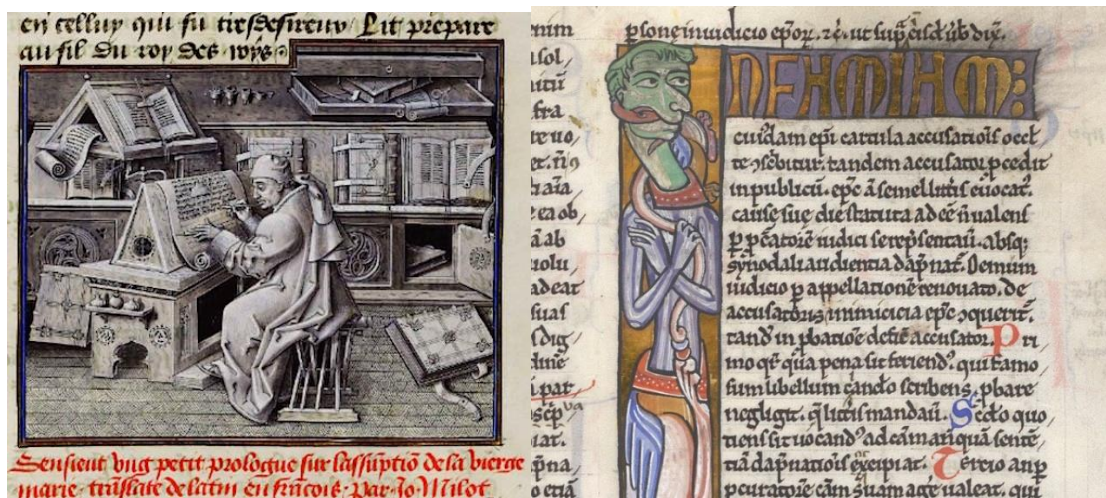 en celluy qui fu tresdesireux Lit prepare
au fil du roy des roys
Sensieut vng petit prologue sur lassūptiō de la vierge
marie translate de latin en francois Par Jo Milot
nim
sol,
nitū
fra
te uo,
ea ob,
ā ab
uolu,
adeat
suas
s dig,
i pat,
iat.
p̄na,
o etiā
psone in iudicio epoꝝ. ⁊c̄. ut sup̄
IN FAMIAM:
cuiꝰdam epī cartula accusatiōis occl
te ↄscbitur. tandem accusatoꝛ ꝓcedit
in publicū. epc̄ euocat̄.
cause sue die statuta ad eē n̄ ualens
ꝑ ꝓcatoꝛē iudici se rep̄sentauit. absq;
synodali audientia dāpnat̄. Demum
iudicio ꝑ appellationē renouato. de
accusatoris inimicicia epc̄ ↄquerit̄.
tand̄ in ꝓbatiōe deficit accusatoꝛ. Pꝛi
mo qr̄ qua pena sit feriendꝰ. qui famo
sum libellum scribens ꝓbare
negligit. Scd̄o quo
tiens sit uocandꝰ ad cām anquā sentē
tiā dāpnatiōis excipiat. Tertio an ꝑ
ꝓcuratoꝛē cām suam agere ualeat. qui